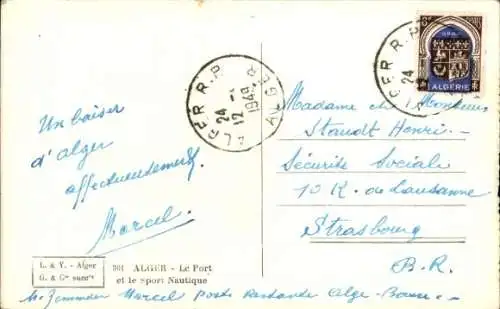 Un baiser
d'Alger
affectueusement
Marcel.
L. & Y. - Alger
G. & Cie succrs
301 ALGER - Le Port
et le Sport Nautique
Marcel poste restante Alger-Bourse
ALGER R.P.
24 -
12
1948
ALGER
ALGER R.P.
24
ALGERIE
Madame et Monsieur
Staudt Henri
Sécurité Sociale
10 R. de Lausanne
Strasbourg
B.R.